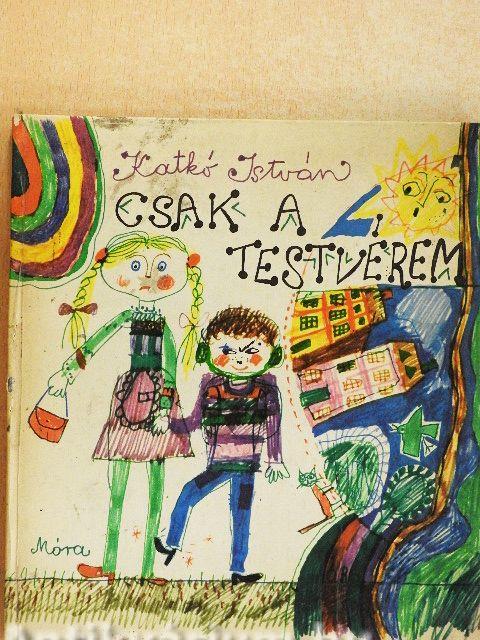 Katkó István
CSAK A
TESTVÉREM
Móra